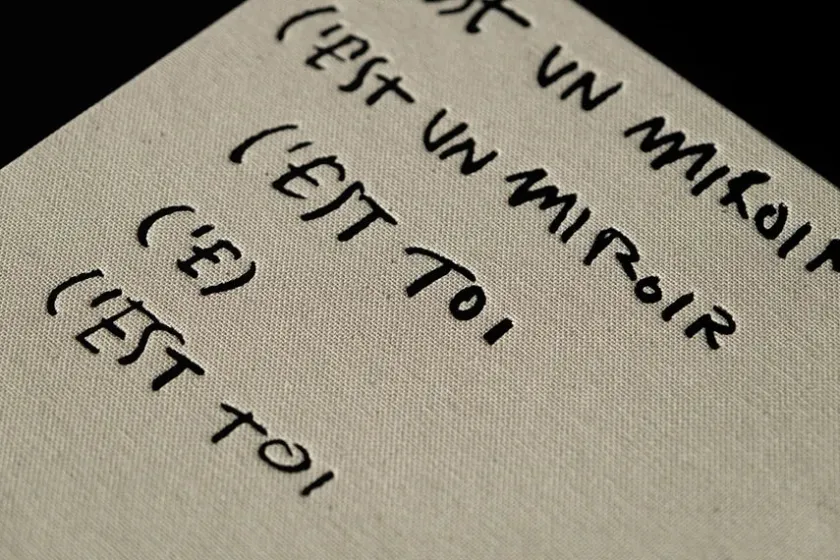 ST UN MIROIR
C'EST UN MIROIR
C'EST TOI
C'E)
C'EST TOI